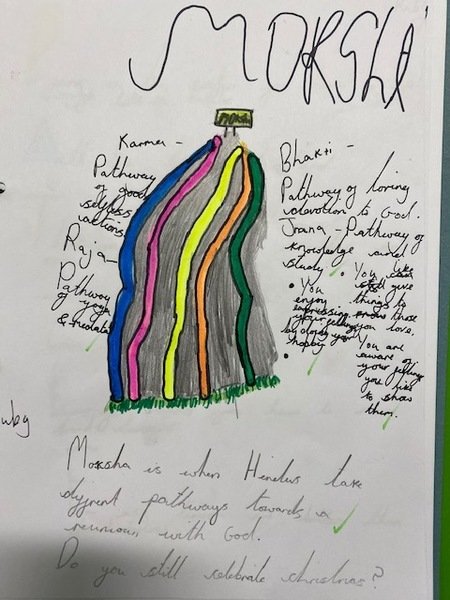 MOKSHA
MOKSHA
Karma -
Pathway
of good
selfless
actions
Raja -
Pathway
of yoga
&
Bhakti -
Pathway of loving
devotion to God.
Jnana - Pathway of
knowledge and
study
• You like
give
things to
those
you love.
• You
enjoy
expressing
your feelings
by doing your
hobby
•
You are
aware of
your feelings
you like
to show
them.
wby
Moksha is when Hindus take
difrent pathways towards a
reunion with God.
Do you still celebrate christmas?